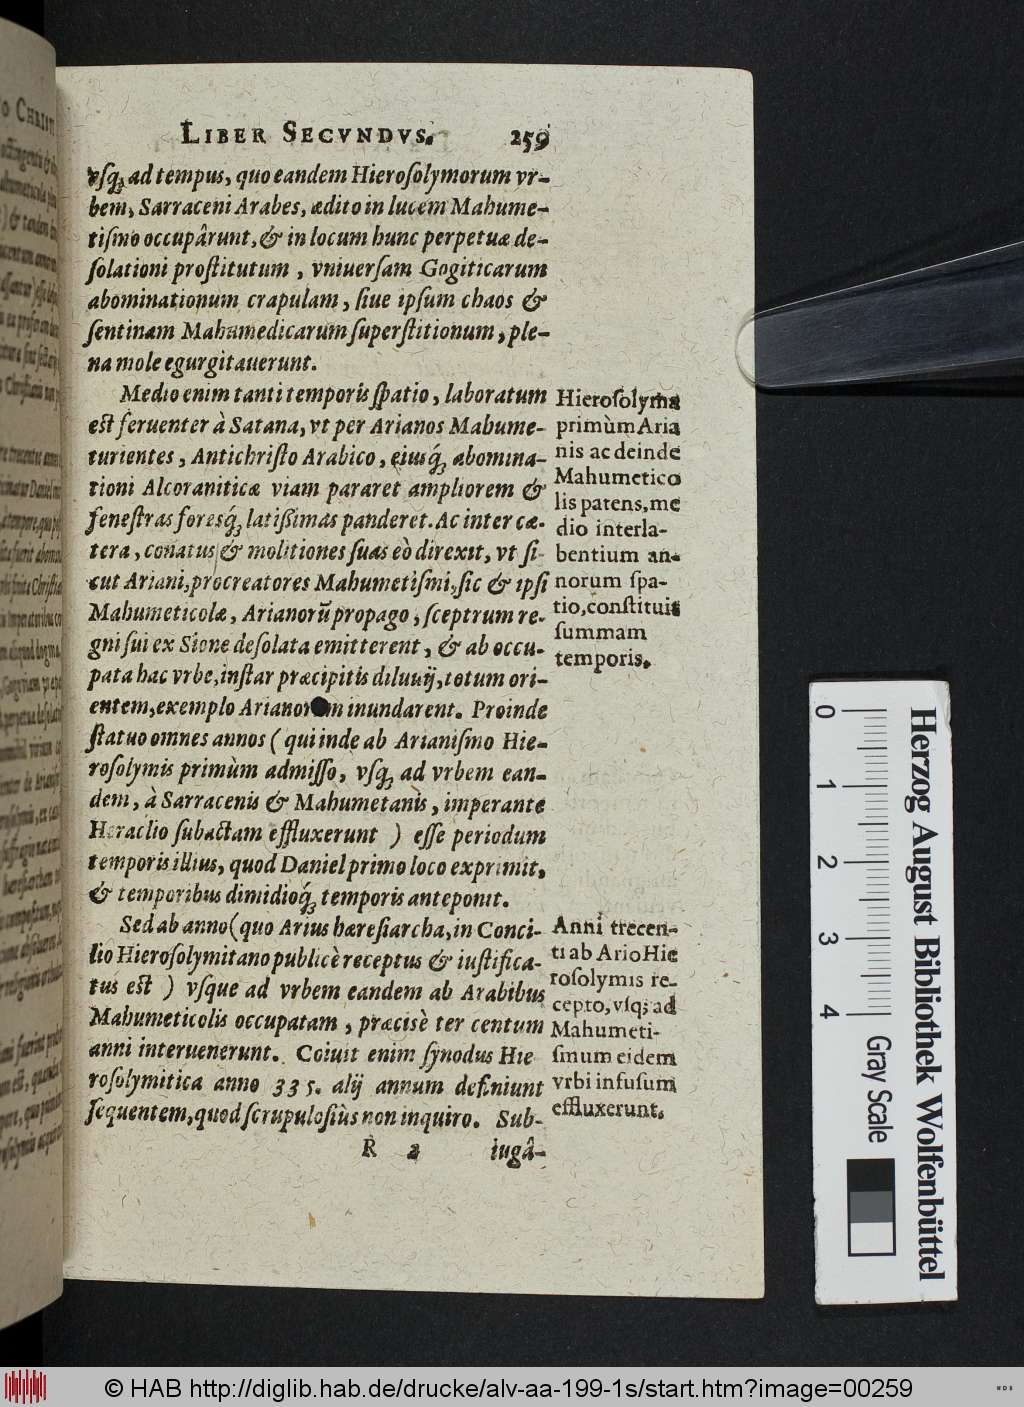 LIBER SECVNDVS. 259
vſq́ꝫ ad tempus, quo eandem Hieroſolymorum vr-
bem, Sarraceni Arabes, ædito in lucem Mahume-
tiſmo occupârunt, & in locum hunc perpetuæ de-
ſolationi proſtitutum, vniuerſam Gogiticarum
abominationum crapulam, ſiue ipſum chaos &
ſentinam Mahumedicarum ſuperſtitionum, ple-
na mole egurgitauerunt.
Medio enim tanti temporis ſpatio, laboratum
eſt feruenter à Satana, vt per Arianos Mahume-
turientes, Antichriſto Arabico, eiusq́ꝫ abomina-
tioni Alcoraniticæ viam pararet ampliorem &
feneſtras foresq́ꝫ latißimas panderet. Ac inter cæ-
tera, conatus & molitiones ſuas eò direxit, vt ſi-
cut Ariani, procreatores Mahumetiſmi, ſic & ipſi
Mahumeticolæ, Arianorũ propago, ſceptrum re-
gni ſui ex Sione deſolata emitterent, & ab occu-
pata hac vrbe, inſtar præcipitis diluuij, totum ori-
entem, exemplo Arianor m inundarent. Proinde
ſtatuo omnes annos ( qui inde ab Arianiſmo Hie-
roſolymis primùm admiſſo, vſq́ꝫ ad vrbem ean-
dem, à Sarracenis & Mahumetanis, imperante
Heraclio ſubactam effluxerunt ) eſſe periodum
temporis illius, quod Daniel primo loco exprimit,
& temporibus dimidioq́ꝫ temporis anteponit.
Sed ab anno (quo Arius hæreſiarcha, in Conci-
lio Hieroſolymitano publicè receptus & iuſtifica-
tus eſt ) vſque ad vrbem eandem ab Arabibus
Mahumeticolis occupatam, præcisè ter centum
anni interuenerunt. Coiuit enim ſynodus Hie
roſolymitica anno 335. alij annum definiunt
ſequentem, quod ſcrupuloſiùs non inquiro. Sub-
R 2 iugâ-
Hieroſolyma
primùm Aria
nis ac deinde
Mahumetico
lis patens, me
dio interla-
bentium an-
norum ſpa-
tio, conſtituit
ſummam
temporis.
Anni trecen-
ti ab Ario Hie
roſolymis re-
cepto, vſqꝫ ad
Mahumeti-
ſmum eidem
vrbi infuſum
effluxerunt.
0 1 2 3 4
Herzog August Bibliothek Wolfenbüttel
Gray Scale
© HAB http://diglib.hab.de/drucke/alv-aa-199-1s/start.htm?image=00259